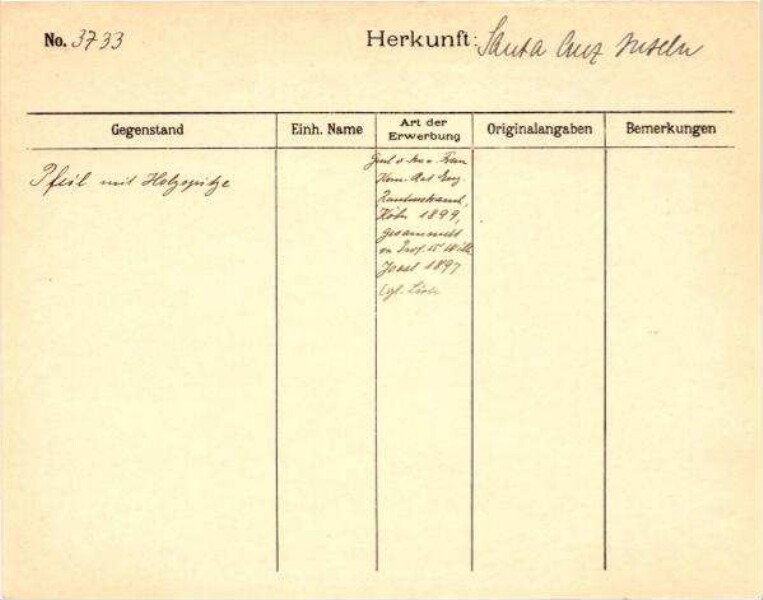 No. 3733
Herkunft: Santa Cruz Inseln
Gegenstand
Einh. Name
Art der
Erwerbung
Originalangaben
Bemerkungen
Pfeil mit Holzspitze
Frau
Rautenstrauch,
Köln 1899,
gesammelt
Prof. Dr Wilh.
Joest 1897